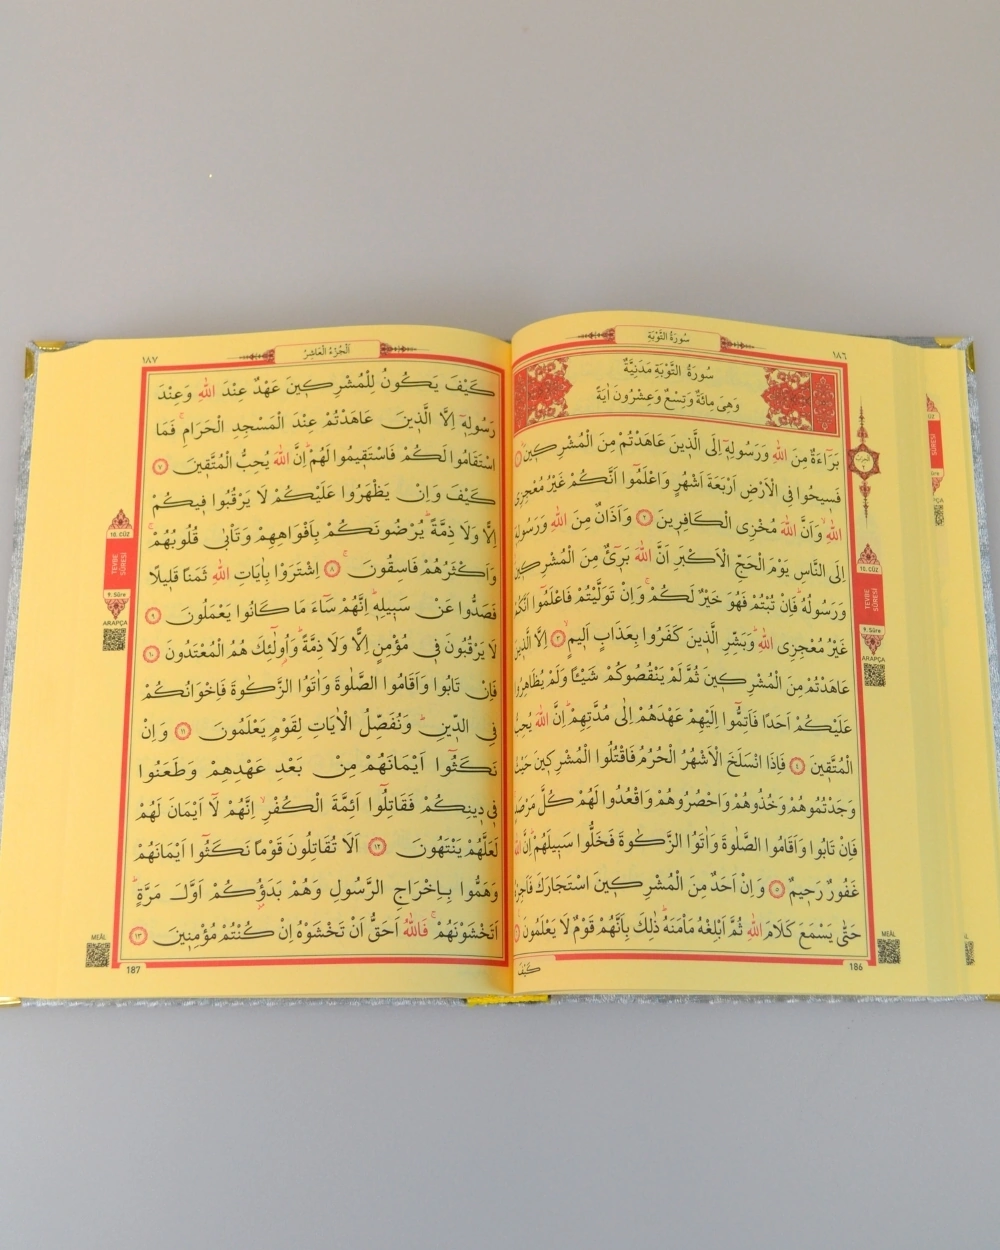 ١٨٦
سُورَةُ التَّوْبَةِ
سُورَةُ التَّوْبَةِ مَدَنِيَّةٌ
وَهِىَ مِائَةٌ وَتِسْعٌ وَعِشْرُونَ اٰيَةً
بَرَٓاءَةٌ مِنَ اللّٰهِ وَرَسُولِهٖٓ اِلَى الَّذٖينَ عَاهَدْتُمْ مِنَ الْمُشْرِكٖينَ
فَسٖيحُوا فِى الْاَرْضِ اَرْبَعَةَ اَشْهُرٍ وَاعْلَمُٓوا اَنَّكُمْ غَيْرُ مُعْجِزِى
اللّٰهِۙ وَاَنَّ اللّٰهَ مُخْزِى الْكَافِرٖينَ ﴿٢﴾ وَاَذَانٌ مِنَ اللّٰهِ وَرَسُولِهٖٓ
اِلَى النَّاسِ يَوْمَ الْحَجِّ الْاَكْبَرِ اَنَّ اللّٰهَ بَرٖٓىءٌ مِنَ الْمُشْرِكٖينَ
وَرَسُولُهُؕ فَاِنْ تُبْتُمْ فَهُوَ خَيْرٌ لَكُمْۚ وَاِنْ تَوَلَّيْتُمْ فَاعْلَمُٓوا اَنَّكُمْ
غَيْرُ مُعْجِزِى اللّٰهِؕ وَبَشِّرِ الَّذٖينَ كَفَرُوا بِعَذَابٍ اَلٖيمٍۙ ﴿٣﴾ اِلَّا الَّذٖينَ
عَاهَدْتُمْ مِنَ الْمُشْرِكٖينَ ثُمَّ لَمْ يَنْقُصُوكُمْ شَيْـًٔا وَلَمْ يُظَاهِرُوا
عَلَيْكُمْ اَحَدًا فَاَتِمُّٓوا اِلَيْهِمْ عَهْدَهُمْ اِلٰى مُدَّتِهِمْؕ اِنَّ اللّٰهَ يُحِبُّ
الْمُتَّقٖينَ ﴿٤﴾ فَاِذَا انْسَلَخَ الْاَشْهُرُ الْحُرُمُ فَاقْتُلُوا الْمُشْرِكٖينَ حَيْثُ
وَجَدْتُمُوهُمْ وَخُذُوهُمْ وَاحْصُرُوهُمْ وَاقْعُدُوا لَهُمْ كُلَّ مَرْصَدٍۚ
فَاِنْ تَابُوا وَاَقَامُوا الصَّلٰوةَ وَاٰتَوُا الزَّكٰوةَ فَخَلُّوا سَبٖيلَهُمْؕ اِنَّ اللّٰهَ
غَفُورٌ رَحٖيمٌ ﴿٥﴾ وَاِنْ اَحَدٌ مِنَ الْمُشْرِكٖينَ اسْتَجَارَكَ فَاَجِرْهُ
حَتّٰى يَسْمَعَ كَلَامَ اللّٰهِ ثُمَّ اَبْلِغْهُ مَأْمَنَهُؕ ذٰلِكَ بِاَنَّهُمْ قَوْمٌ لَا يَعْلَمُونَ
كَيْفَ
186
10. CÜZ
TEVBE SÛRESİ
9. Sûre
ARAPÇA
MEÂL
١٨٧
اَلْجُزْءُ الْعَاشِرُ
كَيْفَ يَكُونُ لِلْمُشْرِكٖينَ عَهْدٌ عِنْدَ اللّٰهِ وَعِنْدَ
رَسُولِهٖٓ اِلَّا الَّذٖينَ عَاهَدْتُمْ عِنْدَ الْمَسْجِدِ الْحَرَامِۚ فَمَا
اسْتَقَامُوا لَكُمْ فَاسْتَقٖيمُوا لَهُمْؕ اِنَّ اللّٰهَ يُحِبُّ الْمُتَّقٖينَ ﴿٧﴾
كَيْفَ وَاِنْ يَظْهَرُوا عَلَيْكُمْ لَا يَرْقُبُوا فٖيكُمْ
اِلًّا وَلَا ذِمَّةًؕ يُرْضُونَكُمْ بِاَفْوَاهِهِمْ وَتَأْبٰى قُلُوبُهُمْۚ
وَاَكْثَرُهُمْ فَاسِقُونَۚ ﴿٨﴾ اِشْتَرَوْا بِاٰيَاتِ اللّٰهِ ثَمَنًا قَلٖيلًا
فَصَدُّوا عَنْ سَبٖيلِهٖؕ اِنَّهُمْ سَٓاءَ مَا كَانُوا يَعْمَلُونَ ﴿٩﴾
لَا يَرْقُبُونَ فٖى مُؤْمِنٍ اِلًّا وَلَا ذِمَّةًؕ وَاُولٰٓئِكَ هُمُ الْمُعْتَدُونَ ﴿١٠﴾
فَاِنْ تَابُوا وَاَقَامُوا الصَّلٰوةَ وَاٰتَوُا الزَّكٰوةَ فَاِخْوَانُكُمْ
فِى الدّٖينِؕ وَنُفَصِّلُ الْاٰيَاتِ لِقَوْمٍ يَعْلَمُونَ ﴿١١﴾ وَاِنْ
نَكَثُٓوا اَيْمَانَهُمْ مِنْ بَعْدِ عَهْدِهِمْ وَطَعَنُوا
فٖى دٖينِكُمْ فَقَاتِلُٓوا اَئِمَّةَ الْكُفْرِۙ اِنَّهُمْ لَٓا اَيْمَانَ لَهُمْ
لَعَلَّهُمْ يَنْتَهُونَ ﴿١٢﴾ اَلَا تُقَاتِلُونَ قَوْمًا نَكَثُٓوا اَيْمَانَهُمْ
وَهَمُّوا بِاِخْرَاجِ الرَّسُولِ وَهُمْ بَدَؤُ۫كُمْ اَوَّلَ مَرَّةٍؕ
اَتَخْشَوْنَهُمْۚ فَاللّٰهُ اَحَقُّ اَنْ تَخْشَوْهُ اِنْ كُنْتُمْ مُؤْمِنٖينَ ﴿١٣﴾
187
10. CÜZ
TEVBE SÛRESİ
9. Sûre
ARAPÇA
MEÂL